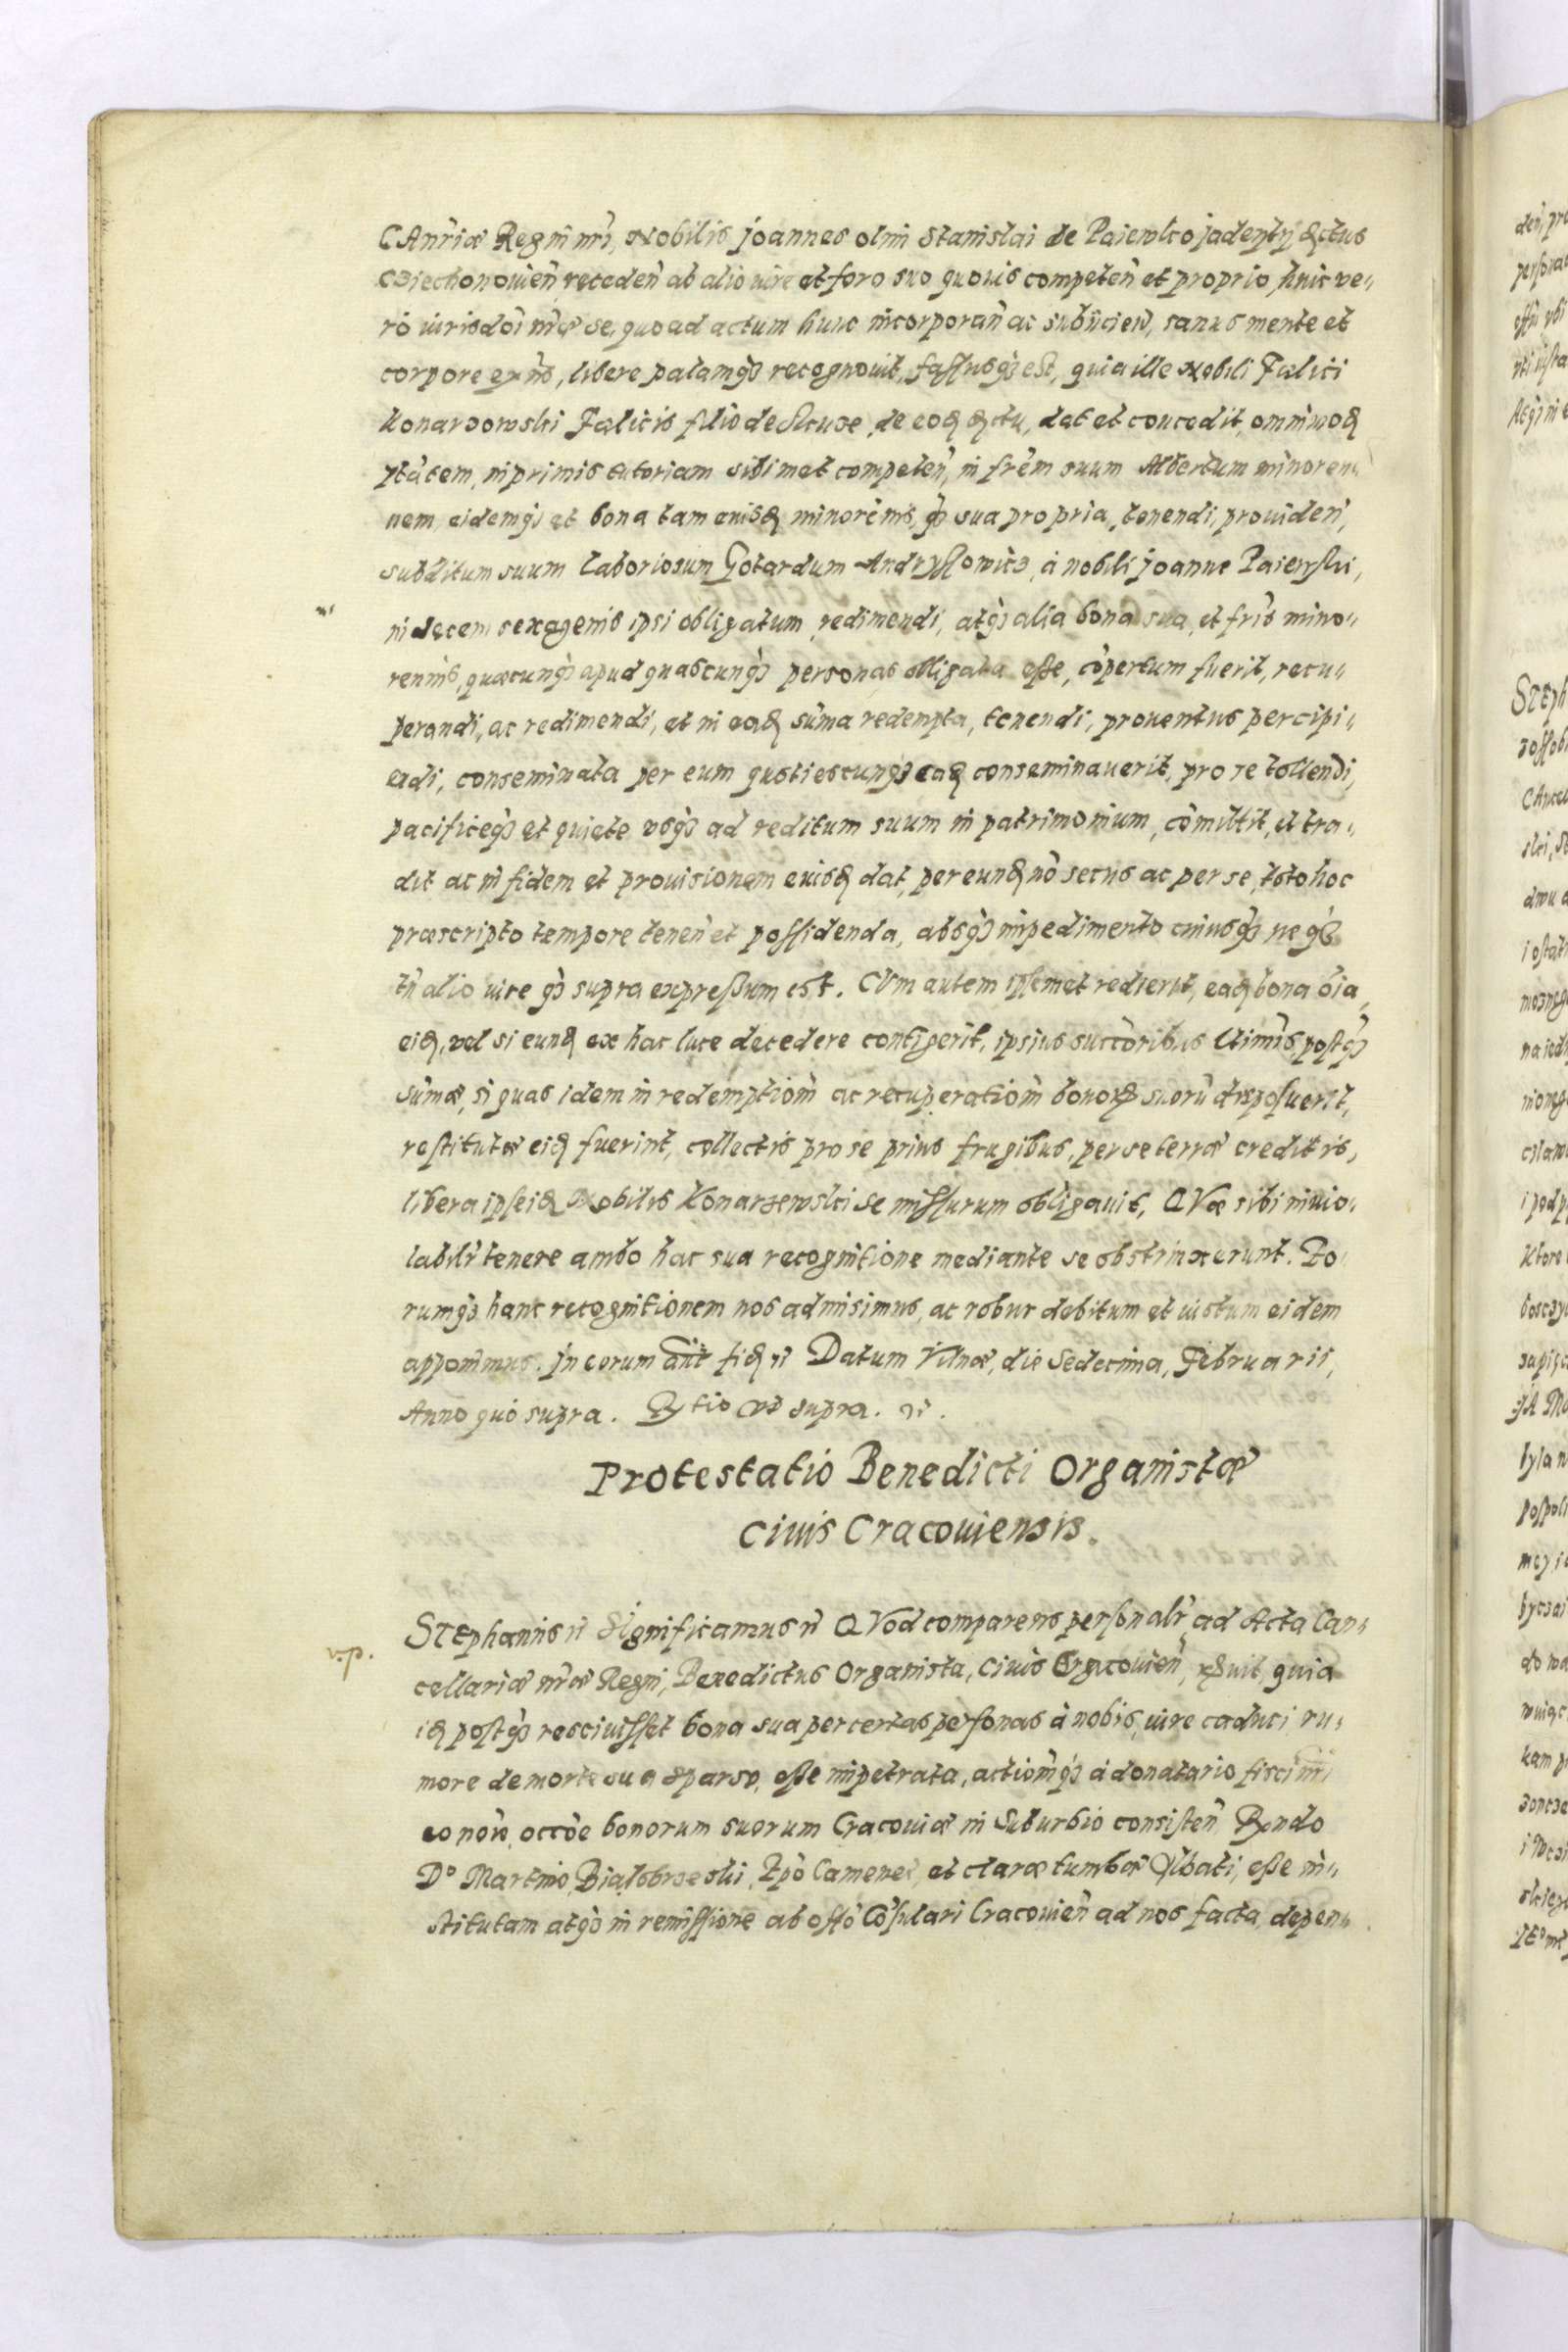 CAnriæ Regni nri, Nobilis Joannes olim Stanislai de Paiewko
Cziechonouien receden ab alio iure et foro suo quouis competen et proprio, huic ve„
ro iurisdoi nræ se, quo ad actum hunc incorporan ac subiicien, sanus mente et
corpore exns, libere palamq recognouit, fassusq est, quia ille Nobili Fælici
Konarzowski Fælicis filio de de eod dat et concedit, omnimod
ptatem, inprimis tutoriam sibimet competen, in frem suum Albertum minoren„
nem, eidemq et bona tam eiusd minorennis, q sua propria, tenendi, prouiden,
subditum suum laboriosum Gotardum Andryssowicz, à nobili Joanne Paiewski,
in decem sexagenis ipsi obligatum, redimendi, atq alia bona sua, et fris mino„
rennis, quæcunq apud quascunq personas obligata esse, copertum fuerit, recu„
perandi, ac redimendi, et in ead suma redempta, tenendi, prouentus percipi„
endi, conseminata per eum quotiescunq ead conseminauerit, pro se tollendi,
pacificeq et quiete vsq ad reditum suum in patrimonium, comittit, et tra„
dit ac in fidem et prouisionem eiusd dat, per eund no secus ac per se, toto hoc
præscripto tempore tenen et possidenda, absq impedimento cuiusq neq
tn alio iure q supra expressum est. CVm autem ipsemet redierit, ead bona oia
eid, vel si eund ex hac luce decedere contigerit, ipsius succoribus ltimis postq
sumæ, si quas idem in redemptiom ac recuperatiom bonor suoru disposuerit,
restitutæ eid fuerint, collectis pro se prius frugibus, per se terræ creditis,
libera ipseid Nobilis Konarzewski se missurum obligauit, QVæ sibi inuio„
labilr tenere ambo hac sua recognitione mediante se obstrinxerunt. Eo„
rumq hanc recognitionem nos admisimus, ac robur debitum et iustum eidem
apponimus. In eorum fid Datum Vilnæ, die Sedecima, Februarii,
Anno quo supra. Rtio vt supra.
Protestatio Benedicti Organistæ
Ciuis Cracouiensis.
v.p.
STEphanus Significamus QVod comparens personalr, ad Acta Can„
cellariæ nræ Regni, Benedictus Organista, Ciuis Cracouien, quia
id postq resciuisset bona sua per certas personas à nobis, iure caduci ru„
more de morte sua sparso, esse impetrata, actiomq à donatario fisci nri
eo noie, occoe bonorum suorum Cracouiæ in Suburbio consisten Rndo
Do Martino Bialobrzeski, Epo Camenec, et claræ tumbæ Abbati, esse in„
stitutam atq in remissione ab offo Cosulari Cracouien ad nos facta, depen„